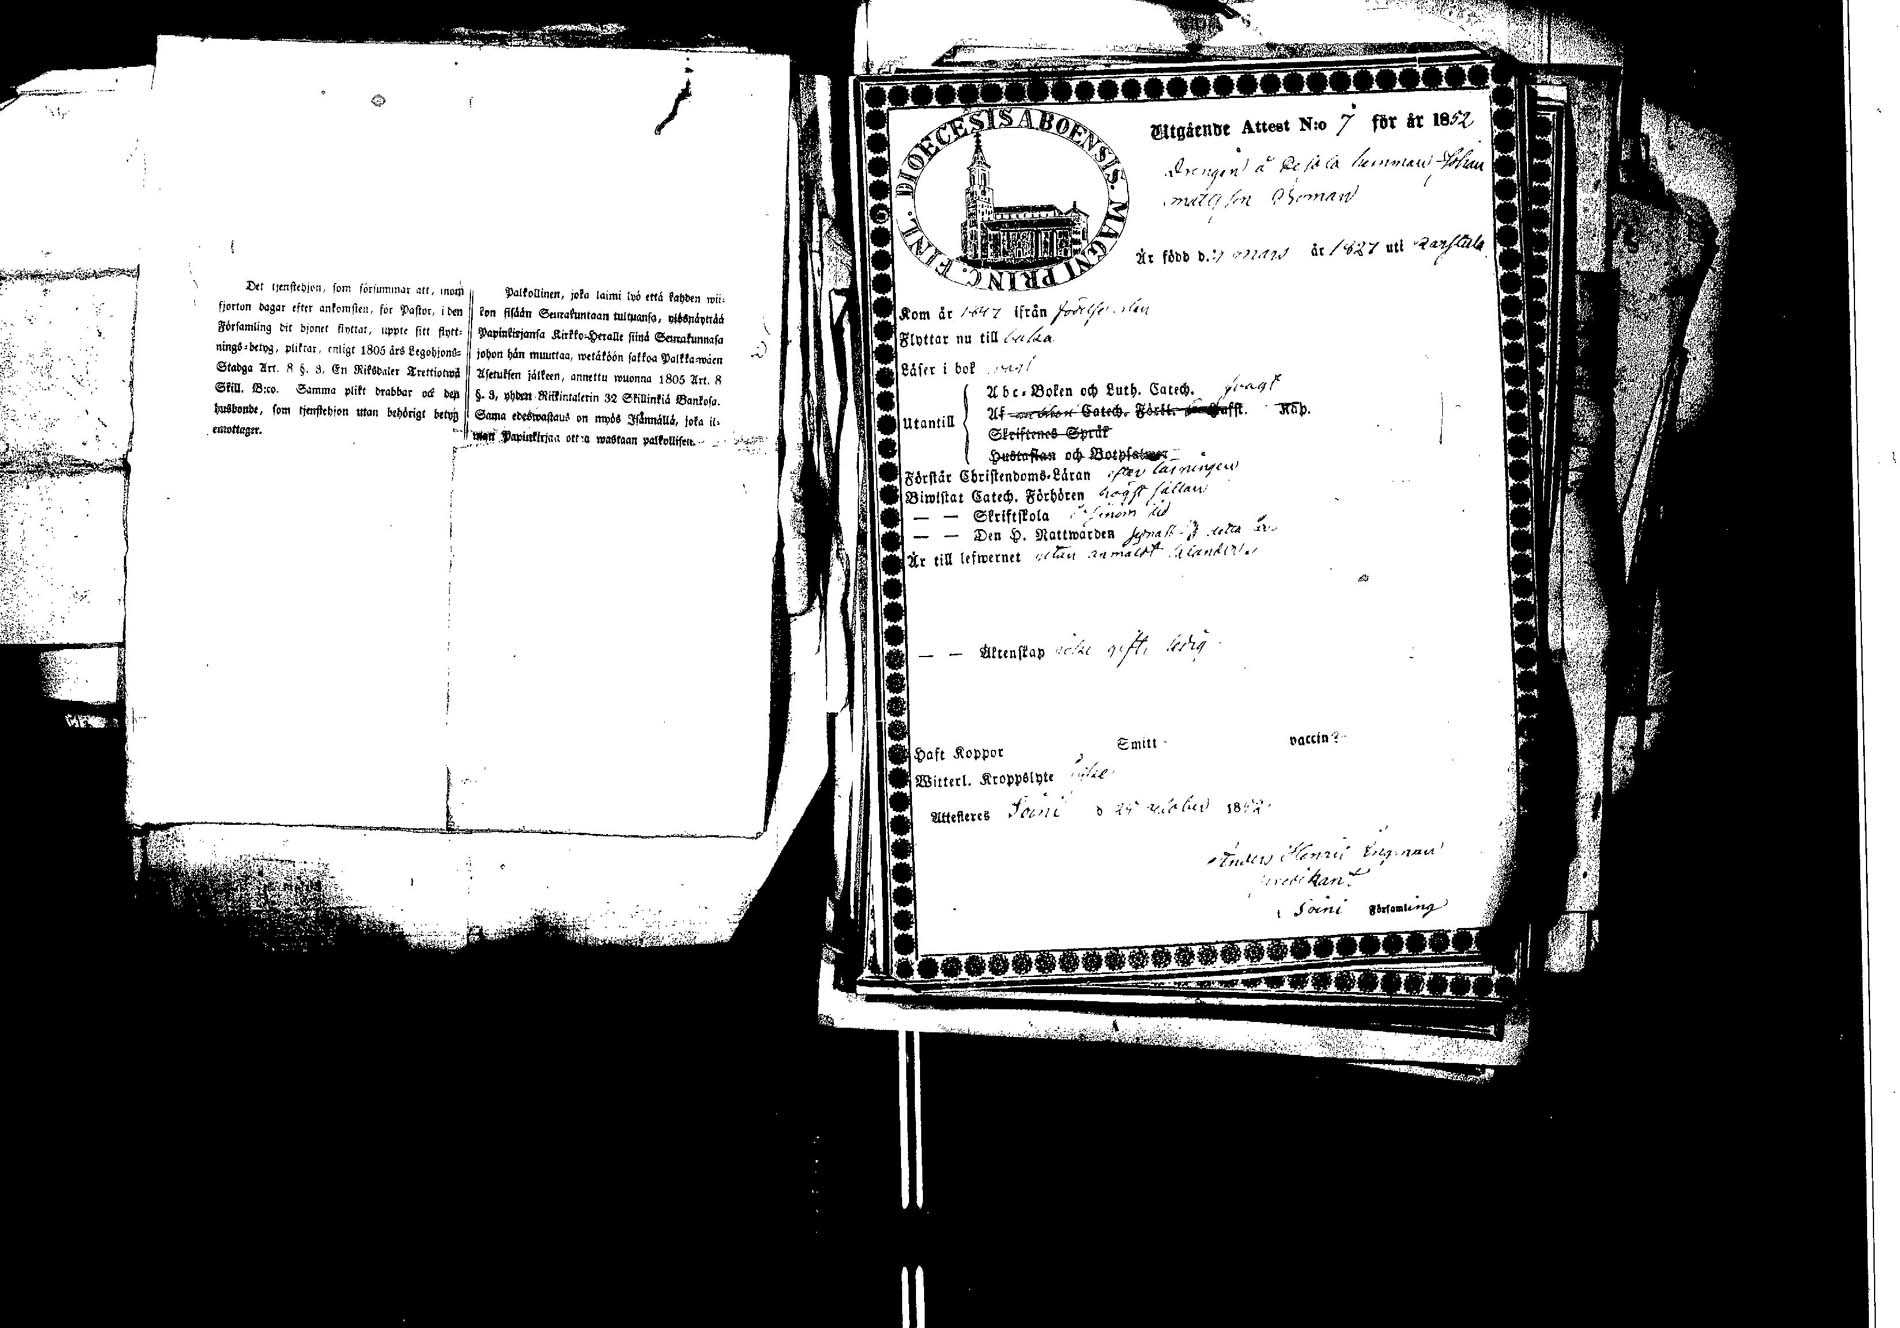 Det tjenstehjon, som försummar att, inom
fjorton dagar efter ankomsten, för Pastor, i den
Församling dit hjonet flyttat, uppte sitt flytt-
nings-betyg, pliktar, enligt 1805 års Legohjons-
Stadga Art. 8 §. 3, En Riksdaler Trettiotwå
Skill. B:co. Samma plikt drabbar ock den
husbonde, som tjenstehjon utan behörigt betyg
emottager.
Palkollinen, joka laimi lyö että kahden wii-
kon sisään Seurakuntaan tultuansa, ylösnäyttää
Papinkirjansa Kirkko-Herralle siinä Seurakunnasa
johon hän muuttaa, wetäköön sakkoa Palkka-wäen
Asetuksen jälkeen, annettu wuonna 1805 Art. 8
§. 3, yhden Riikintalerin 32 Skillinkiä Bankosa.
Sama edeswastaus on myös Isännällä, joka il-
man Papinkirjaa otta wastaan palkollisen.
DIOECESIS ABOENSIS. MAGNI PRINC. FINL.
Utgående Attest N:o 7 för år 1852
Drengen å hemman Johan
Mattsson
Är född d. mars år 1827 uti Karstula
Kom år 1847 ifrån födelseorten
Flyttar nu till
Läser i bok svagt
Utantill
Abc-Boken och Luth. Catech. svagt
Af Catech. Förkl. Hafft. Kap.
Skriftenes Språk
Hustaflan och Botpsalmer
Förstår Christendoms-Läran efter läsningen
Biwistat Catech. Förhören högst sällan
— — Skriftskola
— — Den H. Nattwarden detta år
Är till lefwernet utan anmäldt
— — Äktenskap icke gift, ledig
Haft Koppor Smitt vaccin?
Witterl. Kroppslyte icke
Attesteres Soini d 25 october 1852.
Anders Henric
predikant
Soini Församling